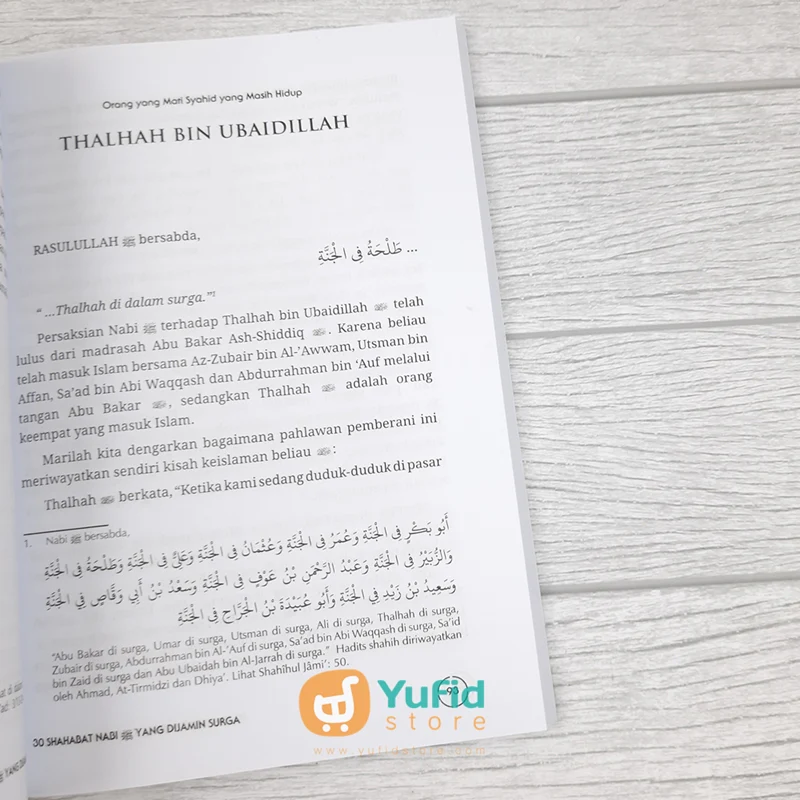 Orang yang Mati Syahid yang Masih Hidup
THALHAH BIN UBAIDILLAH
RASULULLAH ﷺ bersabda,
... طَلْحَةُ فِي الْجَنَّةِ
“ ...Thalhah di dalam surga.”¹
Persaksian Nabi ﷺ terhadap Thalhah bin Ubaidillah telah
lulus dari madrasah Abu Bakar Ash-Shiddiq . Karena beliau
telah masuk Islam bersama Az-Zubair bin Al-’Awwam, Utsman bin
Affan, Sa’ad bin Abi Waqqash dan Abdurrahman bin ‘Auf melalui
tangan Abu Bakar , sedangkan Thalhah adalah orang
keempat yang masuk Islam.
Marilah kita dengarkan bagaimana pahlawan pemberani ini
meriwayatkan sendiri kisah keislaman beliau :
Thalhah berkata, “Ketika kami sedang duduk-duduk di pasar
1. Nabi ﷺ bersabda,
أَبُو بَكْرٍ فِي الْجَنَّةِ وَعُمَرُ فِي الْجَنَّةِ وَعُثْمَانُ فِي الْجَنَّةِ وَعَلِيٌّ فِي الْجَنَّةِ وَطَلْحَةُ فِي الْجَنَّةِ
وَالزُّبَيْرُ فِي الْجَنَّةِ وَعَبْدُ الرَّحْمَنِ بْنُ عَوْفٍ فِي الْجَنَّةِ وَسَعْدُ بْنُ أَبِي وَقَّاصٍ فِي الْجَنَّةِ
وَسَعِيدُ بْنُ زَيْدٍ فِي الْجَنَّةِ وَأَبُو عُبَيْدَةَ بْنُ الْجَرَّاحِ فِي الْجَنَّةِ
“Abu Bakar di surga, Umar di surga, Utsman di surga, Ali di surga, Thalhah di surga,
Zubair di surga, Abdurrahman bin Al-‘Auf di surga, Sa’ad bin Abi Waqqash di surga, Sa’id
bin Zaid di surga dan Abu Ubaidah bin Al-Jarrah di surga.” Hadits shahih diriwayatkan
oleh Ahmad, At-Tirmidzi dan Dhiya’. Lihat Shahîhul Jâmi’: 50.
30 SHAHABAT NABI ﷺ YANG DIJAMIN SURGA
93
Yufid
store
www.yufidstore.com